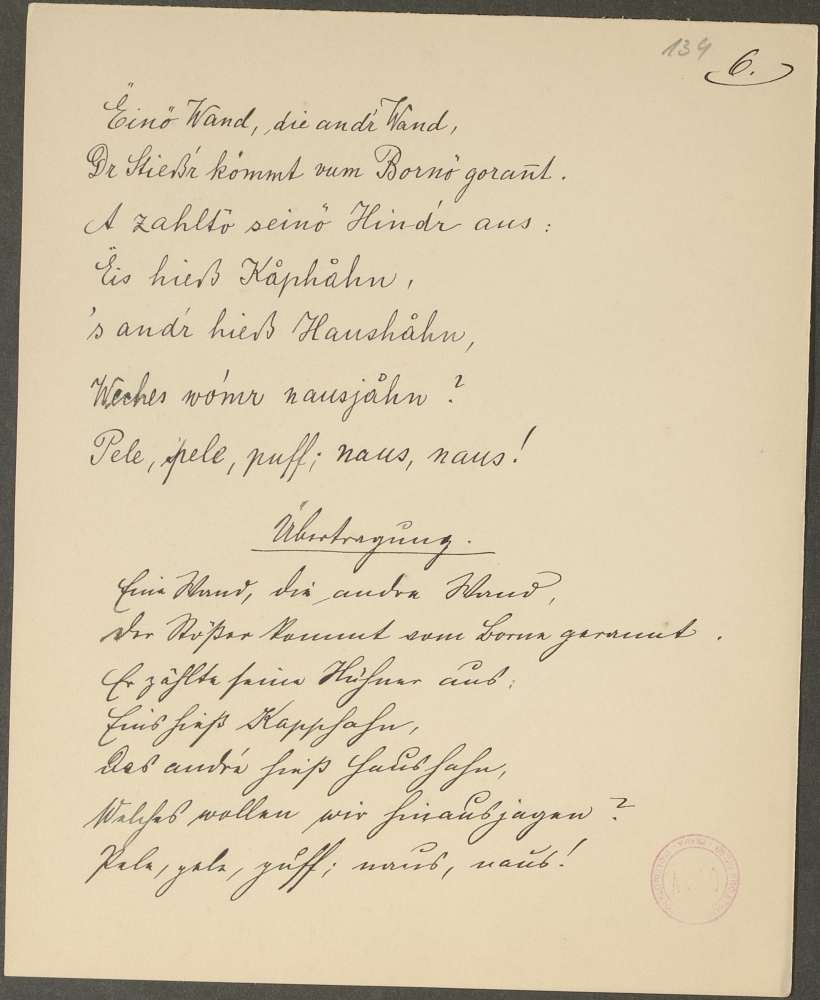 134
6.
Ëinö Wand, die and'r Wand,
Dr Stieß'r kömmt vum Bornö goran̄t.
A zahltö seinö Hind'r aus:
Ëis hieß Kåphåhn,
's and'r hieß Haushåhn,
Weches wö'mr nausjåhn?
Pele, pele, puff; naus, naus!
Übertragung.
Eine Wand, die andre Wand,
Der Stößer kommt vom Borne gerannt.
Er zählte seine Hühner aus:
Eins hieß Kapphahn,
Das andre hieß Haushahn,
Welches wollen wir hinausjagen?
Pele, pele, puff; naus, naus!